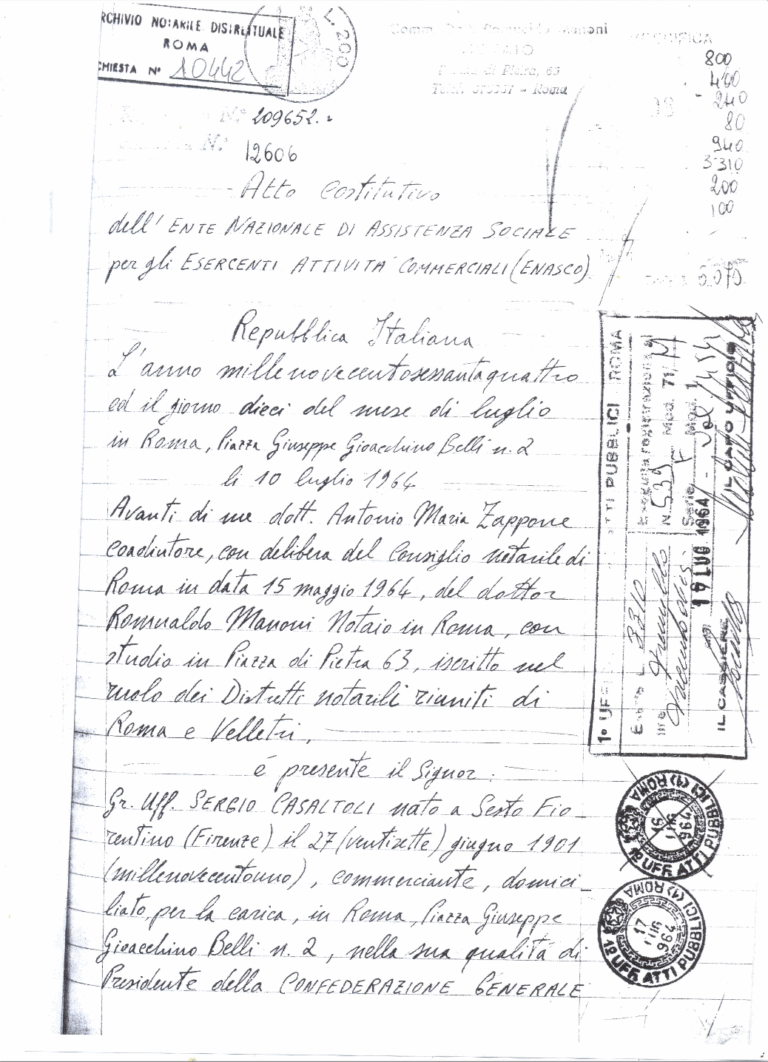 ARCHIVIO NOTARILE DISTRETTUALE
ROMA
CHIESTA N° 10442
L. 200
NOTAIO
Piazza di Pietra, 63
Roma
SPECIFICA
800
400
240
80
940
3310
200
100
N° 209652.
N° 12606
Atto Costitutivo
dell' ENTE NAZIONALE DI ASSISTENZA SOCIALE
per gli ESERCENTI ATTIVITÀ COMMERCIALI (ENASCO)
Repubblica Italiana
L'anno millenovecentosessantaquattro
ed il giorno dieci del mese di luglio
in Roma, Piazza Giuseppe Gioacchino Belli n. 2
li 10 luglio 1964
Avanti di me dott. Antonio Maria Zappone
coadiutore, con delibera del Consiglio notarile di
Roma in data 15 maggio 1964, del dottor
Romualdo Manoni Notaio in Roma, con
studio in Piazza di Pietra 63, iscritto nel
ruolo dei Distretti notarili riuniti di
Roma e Velletri,
é presente il Signor:
Gr. Uff. SERGIO CASALTOLI nato a Sesto Fio-
rentino (Firenze) il 27 (ventisette) giugno 1901
(millenovecentouno), commerciante, domici-
liato, per la carica, in Roma, Piazza Giuseppe
Gioacchino Belli n. 2, nella sua qualità di
Presidente della CONFEDERAZIONE GENERALE
1° UFF. ATTI PUBBLICI ROMA
Eseguita registrazione il
N. 539 Mod. 71/M
Serie F Mod. 1
LUG 1964
Esatte L. 3310
IL CASSIERE
IL CAPO UFFICIO
1° UFF. ATTI PUBBLICI (1) ROMA
1964
1° UFF. ATTI PUBBLICI (1) ROMA
17
LUG
964